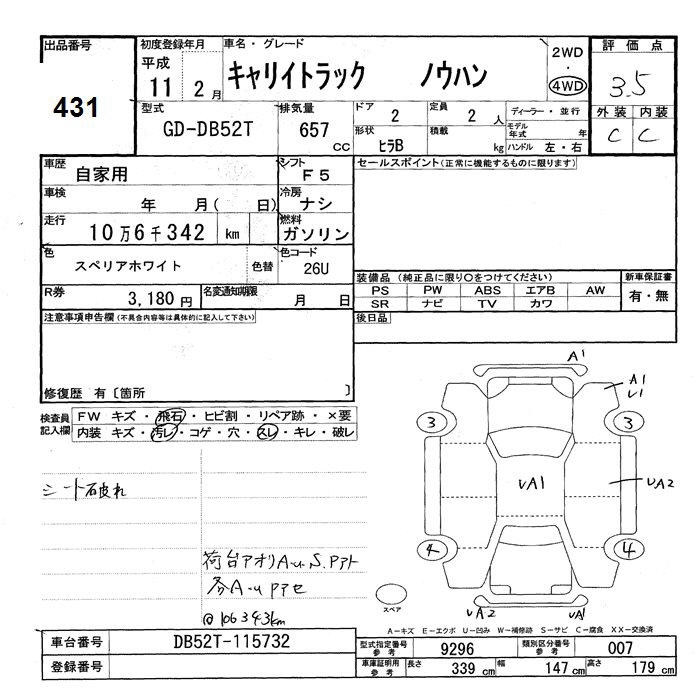 出品番号
431
初度登録年月
平成
11 2 月
車名・グレード
キャリイトラック ノウハン
2WD
・
4WD
評価点
3.5
外装 内装
C C
型式
GD-DB52T
排気量
657
CC
ドア
2
定員
2 人
ディーラー・並行
形状
ヒラB
積載
kg
モデル年式 年
ハンドル 左・右
車歴
自家用
シフト
F5
セールスポイント(正常に機能するものに限ります)
車検
年 月( 日)
冷房
ナシ
走行
10万6千342 km
燃料
ガソリン
色
スペリアホワイト
色替
色コード
26U
装備品 (純正品に限り○をつけてください)
新車保証書
PS PW ABS エアB AW
SR ナビ TV カワ
有・無
R券
3,180 円
名変通知期限
月 日
注意事項申告欄(不具合内容等は具体的に記入して下さい)
後日品
修復歴 有〔箇所 〕
検査員
記入欄
FW キズ・飛石・ヒビ割・リペア跡・×要
内装 キズ・汚レ・コゲ・穴・スレ・キレ・破レ
A1
A1
3
3
UA1
UA2
4
4
シート破れ
荷台アオリA-u.S.
@106343km
スペア
UA2
UA1
A-キズ E-エクボ U-凹み W-補修跡 S-サビ C-腐食 XX-交換済
車台番号
DB52T-115732
登録番号
型式指定番号
参考
9296
類別区分番号
参考
007
車庫証明用
参考
長さ
339 cm
幅
147 cm
高さ
179 cm